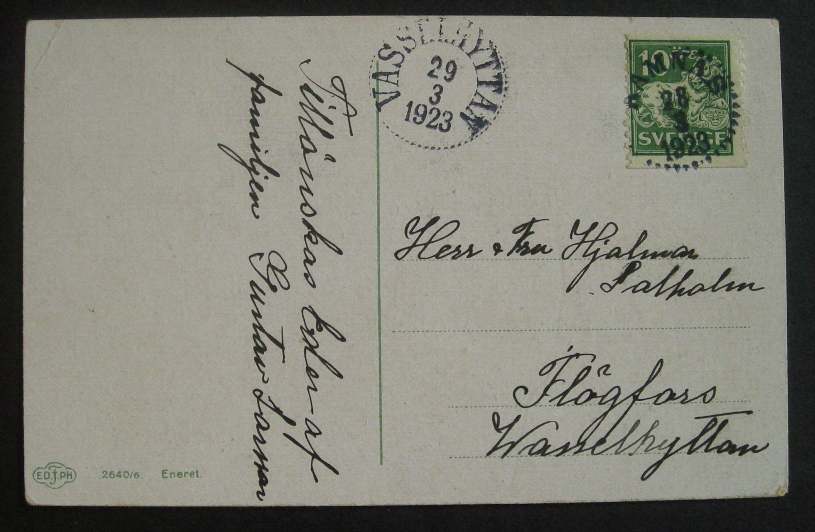 Tillönskas Eder af
familjen Gustav Larsson
VASSELHYTTAN
29
3
1923
10 ÖRE
SVERIGE
RAMNÄS
28
3
1923
Herr & Fru Hjalmar
Palholm
Flögfors
Wasselhyttan
ED.F.PH
2640/6 Eneret.